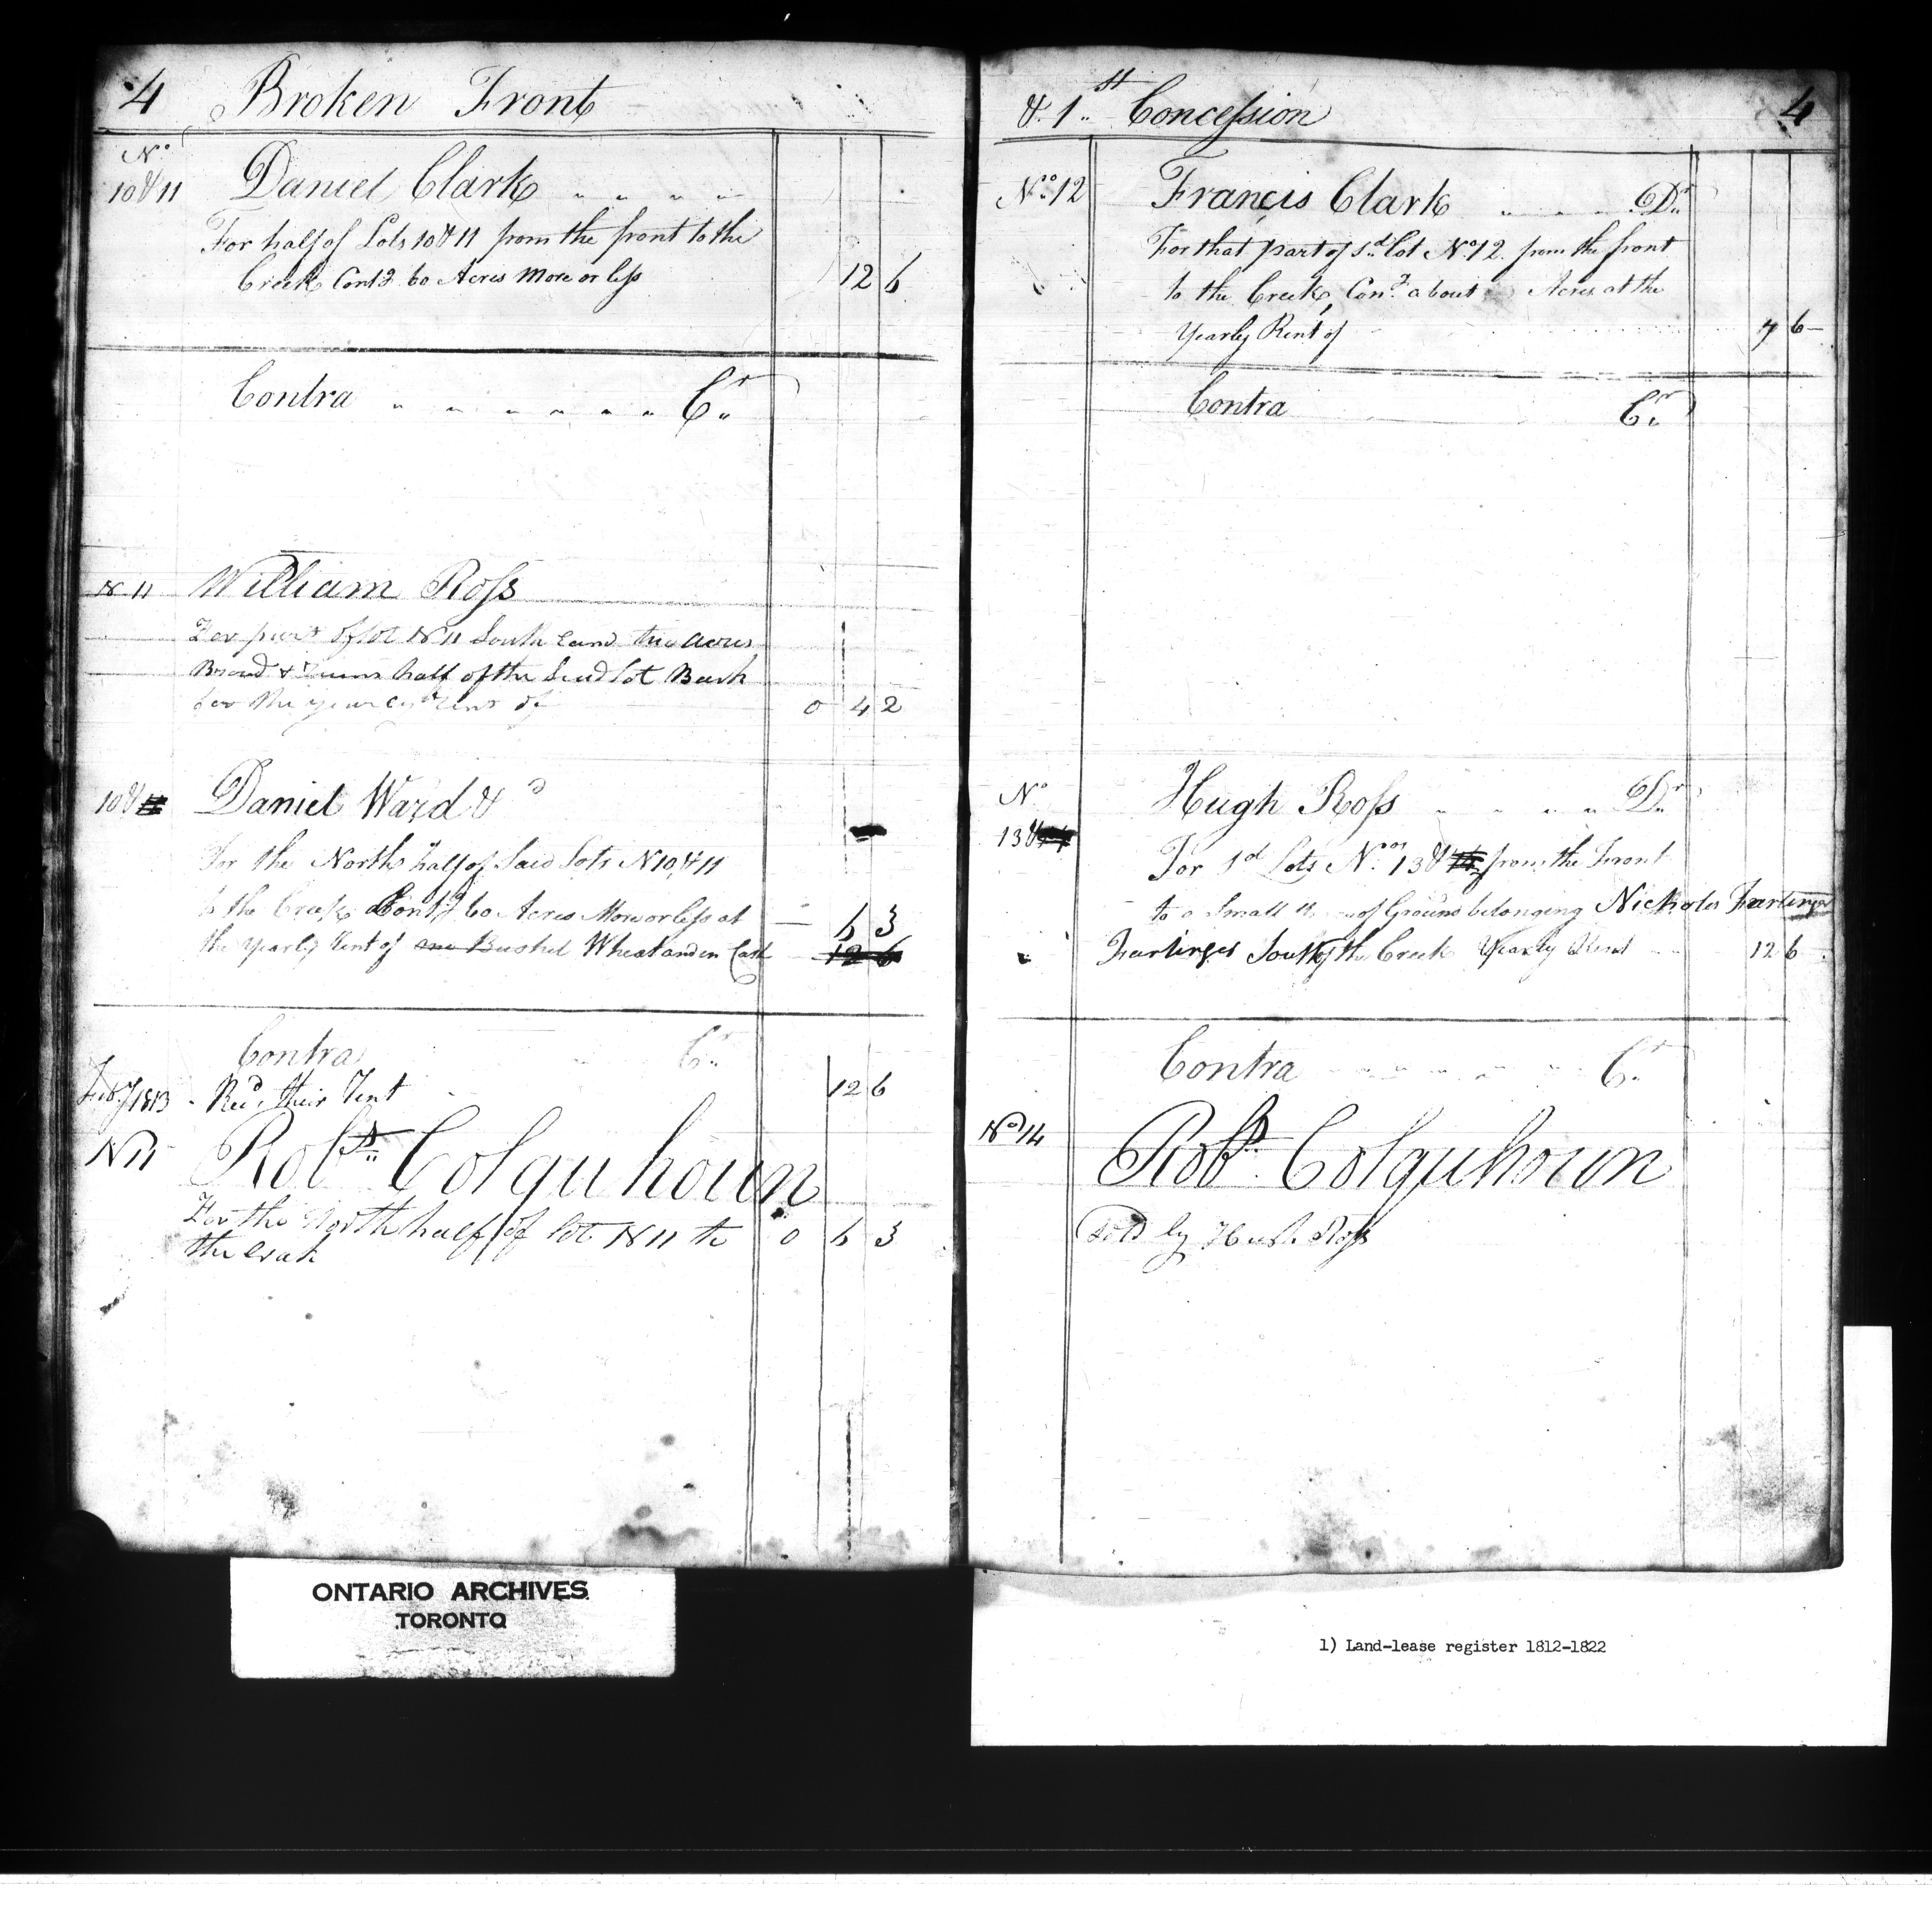 4 Broken Front
No
10 & 11 Daniel Clark
For half of Lots 10 & 11 from the front to the
Creek Contg 60 Acres more or less 12 6
Contra Cr
N 11 William Ross
For part of lot N 11 South two acres
Broad & half of the Sead lot Back
for the year rent of 0 4 2
10 & 11 Daniel Ward &
For the North half of Said Lots N 10 & 11
to the Creek Contg 60 Acres More or less at 6 3
the yearly Rent of one Bushel Wheat and in Cash 12 6
Contra Cr
Feby 1813 Recd their Rent 12 6
N 11 Robt Colquhoun
For the North half of lot N 11 to 0 6 3
the Creak
& 1st Concession 4
No 12 Francis Clark Dr
For that part of sd Lot No 12 from the front
to the Creek, Cong about Acres at the
Yearly Rent of 7 6
Contra Cr
No
13 & 14 Hugh Ross Dr
For sd Lots Nos 13 & 14 from the Front
to a Small of Ground belonging Nicholes Farlinger
Farlinger South of the Creek Yearly Rent 12 6
Contra Cr
No 14 Robt Colquhoun
Sold by Hugh Ross
ONTARIO ARCHIVES
TORONTO
1) Land-lease register 1812-1822